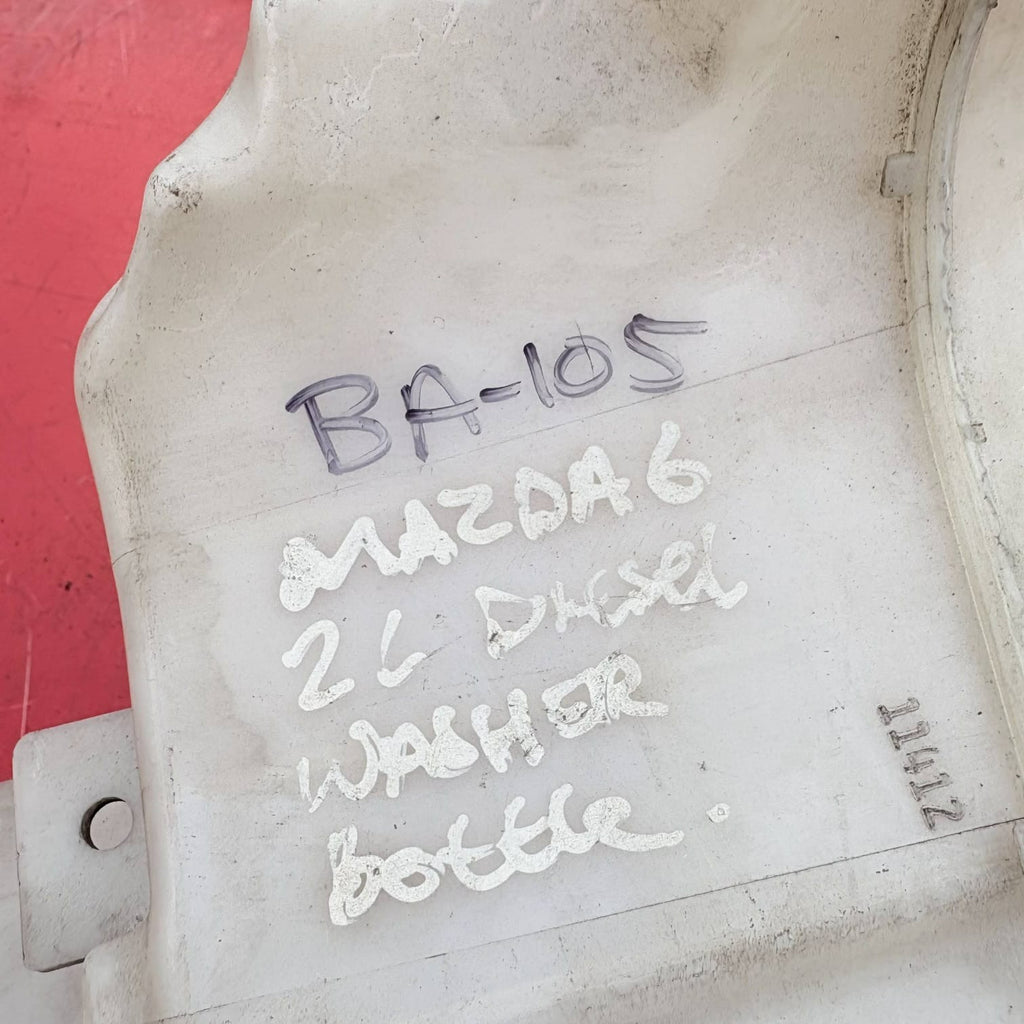 BA-105
MAZDA 6
2L Diesel
WASHER
bottle.
11412